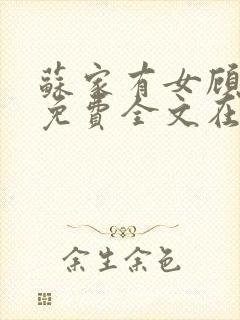 蘇家有女顧
免費全文在
余生余色